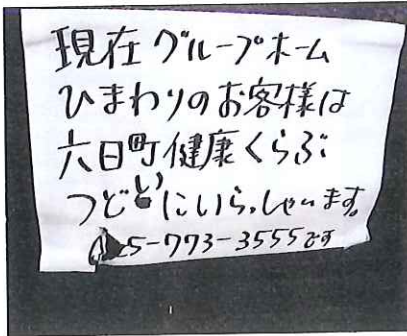 現在グループホーム
ひまわりのお客様は
六日町健康くらぶ
つどいにいらっしゃいます。
025-773-3555です